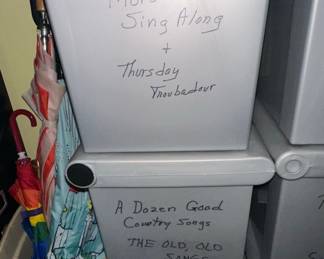 Sing Along
+
Thursday
Troubadour
A Dozen Good
Country Songs
THE OLD, OLD
SONGS